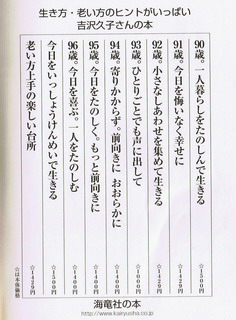 生き方・老い方のヒントがいっぱい
吉沢久子さんの本
90歳。一人暮らしをたのしんで生きる ☆1500円
91歳。今日を悔いなく幸せに ☆1429円
92歳。小さなしあわせを集めて生きる ☆1429円
93歳。ひとりごとでも声に出して ☆1000円
94歳。寄りかからず。前向きに おおらかに ☆1429円
95歳。今日をたのしく。もっと前向きに ☆1000円
96歳。今日を喜ぶ。一人をたのしむ ☆1000円
今日をいっしょうけんめいで生きる ☆1429円
老い方上手の楽しい台所 ☆1429円
☆は本体価格
海竜社の本
http://www.kairyusha.co.jp